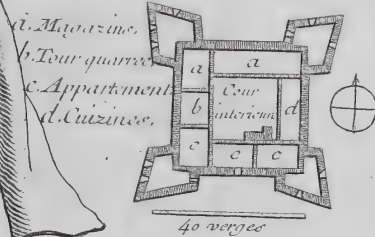 a. Magazins.
b. Tour quarrée
c. Appartement
d. Cuizines.
a
a
b
Cour
interieure
d
c
c
c
40 verges